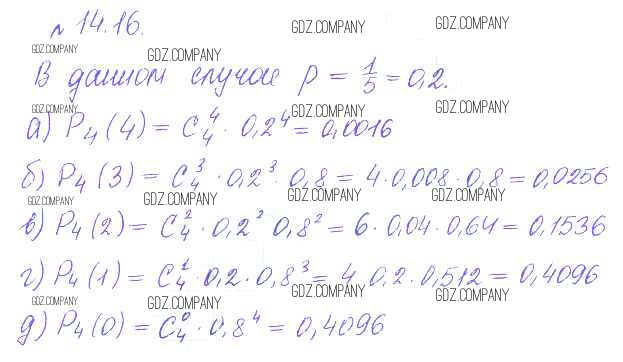 № 14.16.
GDZ.COMPANY GDZ.COMPANY
GDZ.COMPANY GDZ.COMPANY
В данном случае p = 1/5 = 0,2.
GDZ.COMPANY GDZ.COMPANY GDZ.COMPANY
а) P₄(4) = C₄⁴ · 0,2⁴ = 0,0016
GDZ.COMPANY GDZ.COMPANY GDZ.COMPANY
б) P₄(3) = C₄³ · 0,2³ · 0,8 = 4 · 0,008 · 0,8 = 0,0256
GDZ.COMPANY GDZ.COMPANY GDZ.COMPANY GDZ.COMPANY
в) P₄(2) = C₄² · 0,2² 0,8² = 6 · 0,04 · 0,64 = 0,1536
г) P₄(1) = C₄¹ · 0,2 · 0,8³ = 4 0,2 · 0,512 = 0,4096
GDZ.COMPANY GDZ.COMPANY GDZ.COMPANY GDZ.COMPANY
д) P₄(0) = C₄⁰ · 0,8⁴ = 0,4096